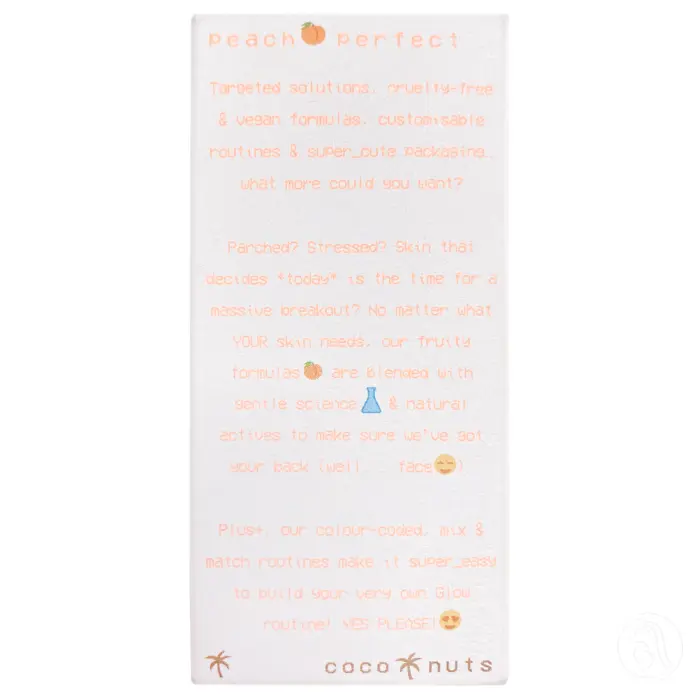 peach🍑perfect
Targeted solutions, cruelty-free
& vegan formulas, customisable
routines & super_cute packaging..
what more could you want?
Parched? Stressed? Skin that
decides *today* is the time for a
massive breakout? No matter what
YOUR skin needs, our fruity
formulas🍑 are blended with
gentle science & natural
actives to make sure we've got
your back (well... face😍)
Plus+, our colour-coded, mix &
match routines make it super_easy
to build your very own Glow
routine! YES PLEASE!😍
coco🌴nuts